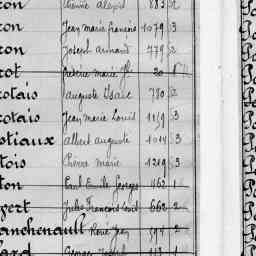 ron Etienne Alexis 883 2
ron Jean Marie François 1079 3
ron Joseph Armand 779 2
rot Frédéric Marie 20 1
rotais Auguste Isaïe 780 2
rotais Jean Marie Louis 1119 3
otiaux Albert Auguste 1014 3
tois Pierre Marie 1219 3
ton Paul Emile Georges 462 1
gert Jules François Louis 662 2
anchenault René Jean 594 2
ard Georges Joseph 113 1